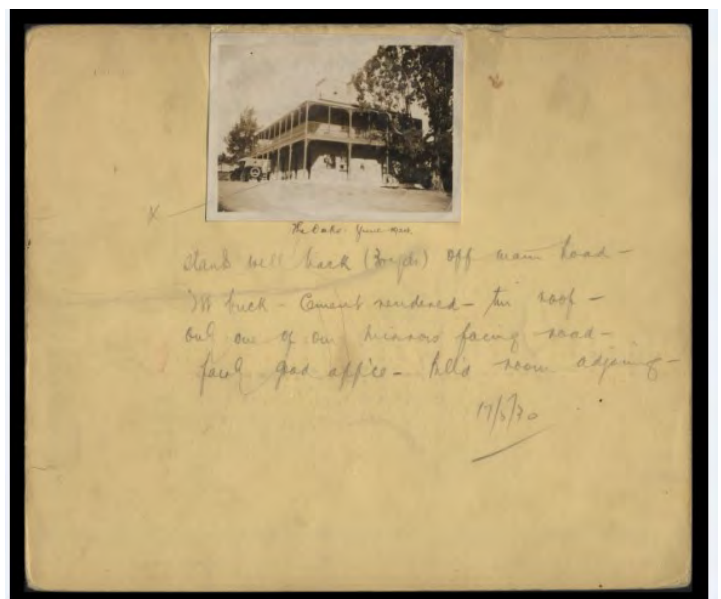 The Oaks -
stands well back (30 yds) off main Road -
brick - Cement rendered - tin roof -
one of our mirrors facing road -
good office - room adjoining -
17/5/30